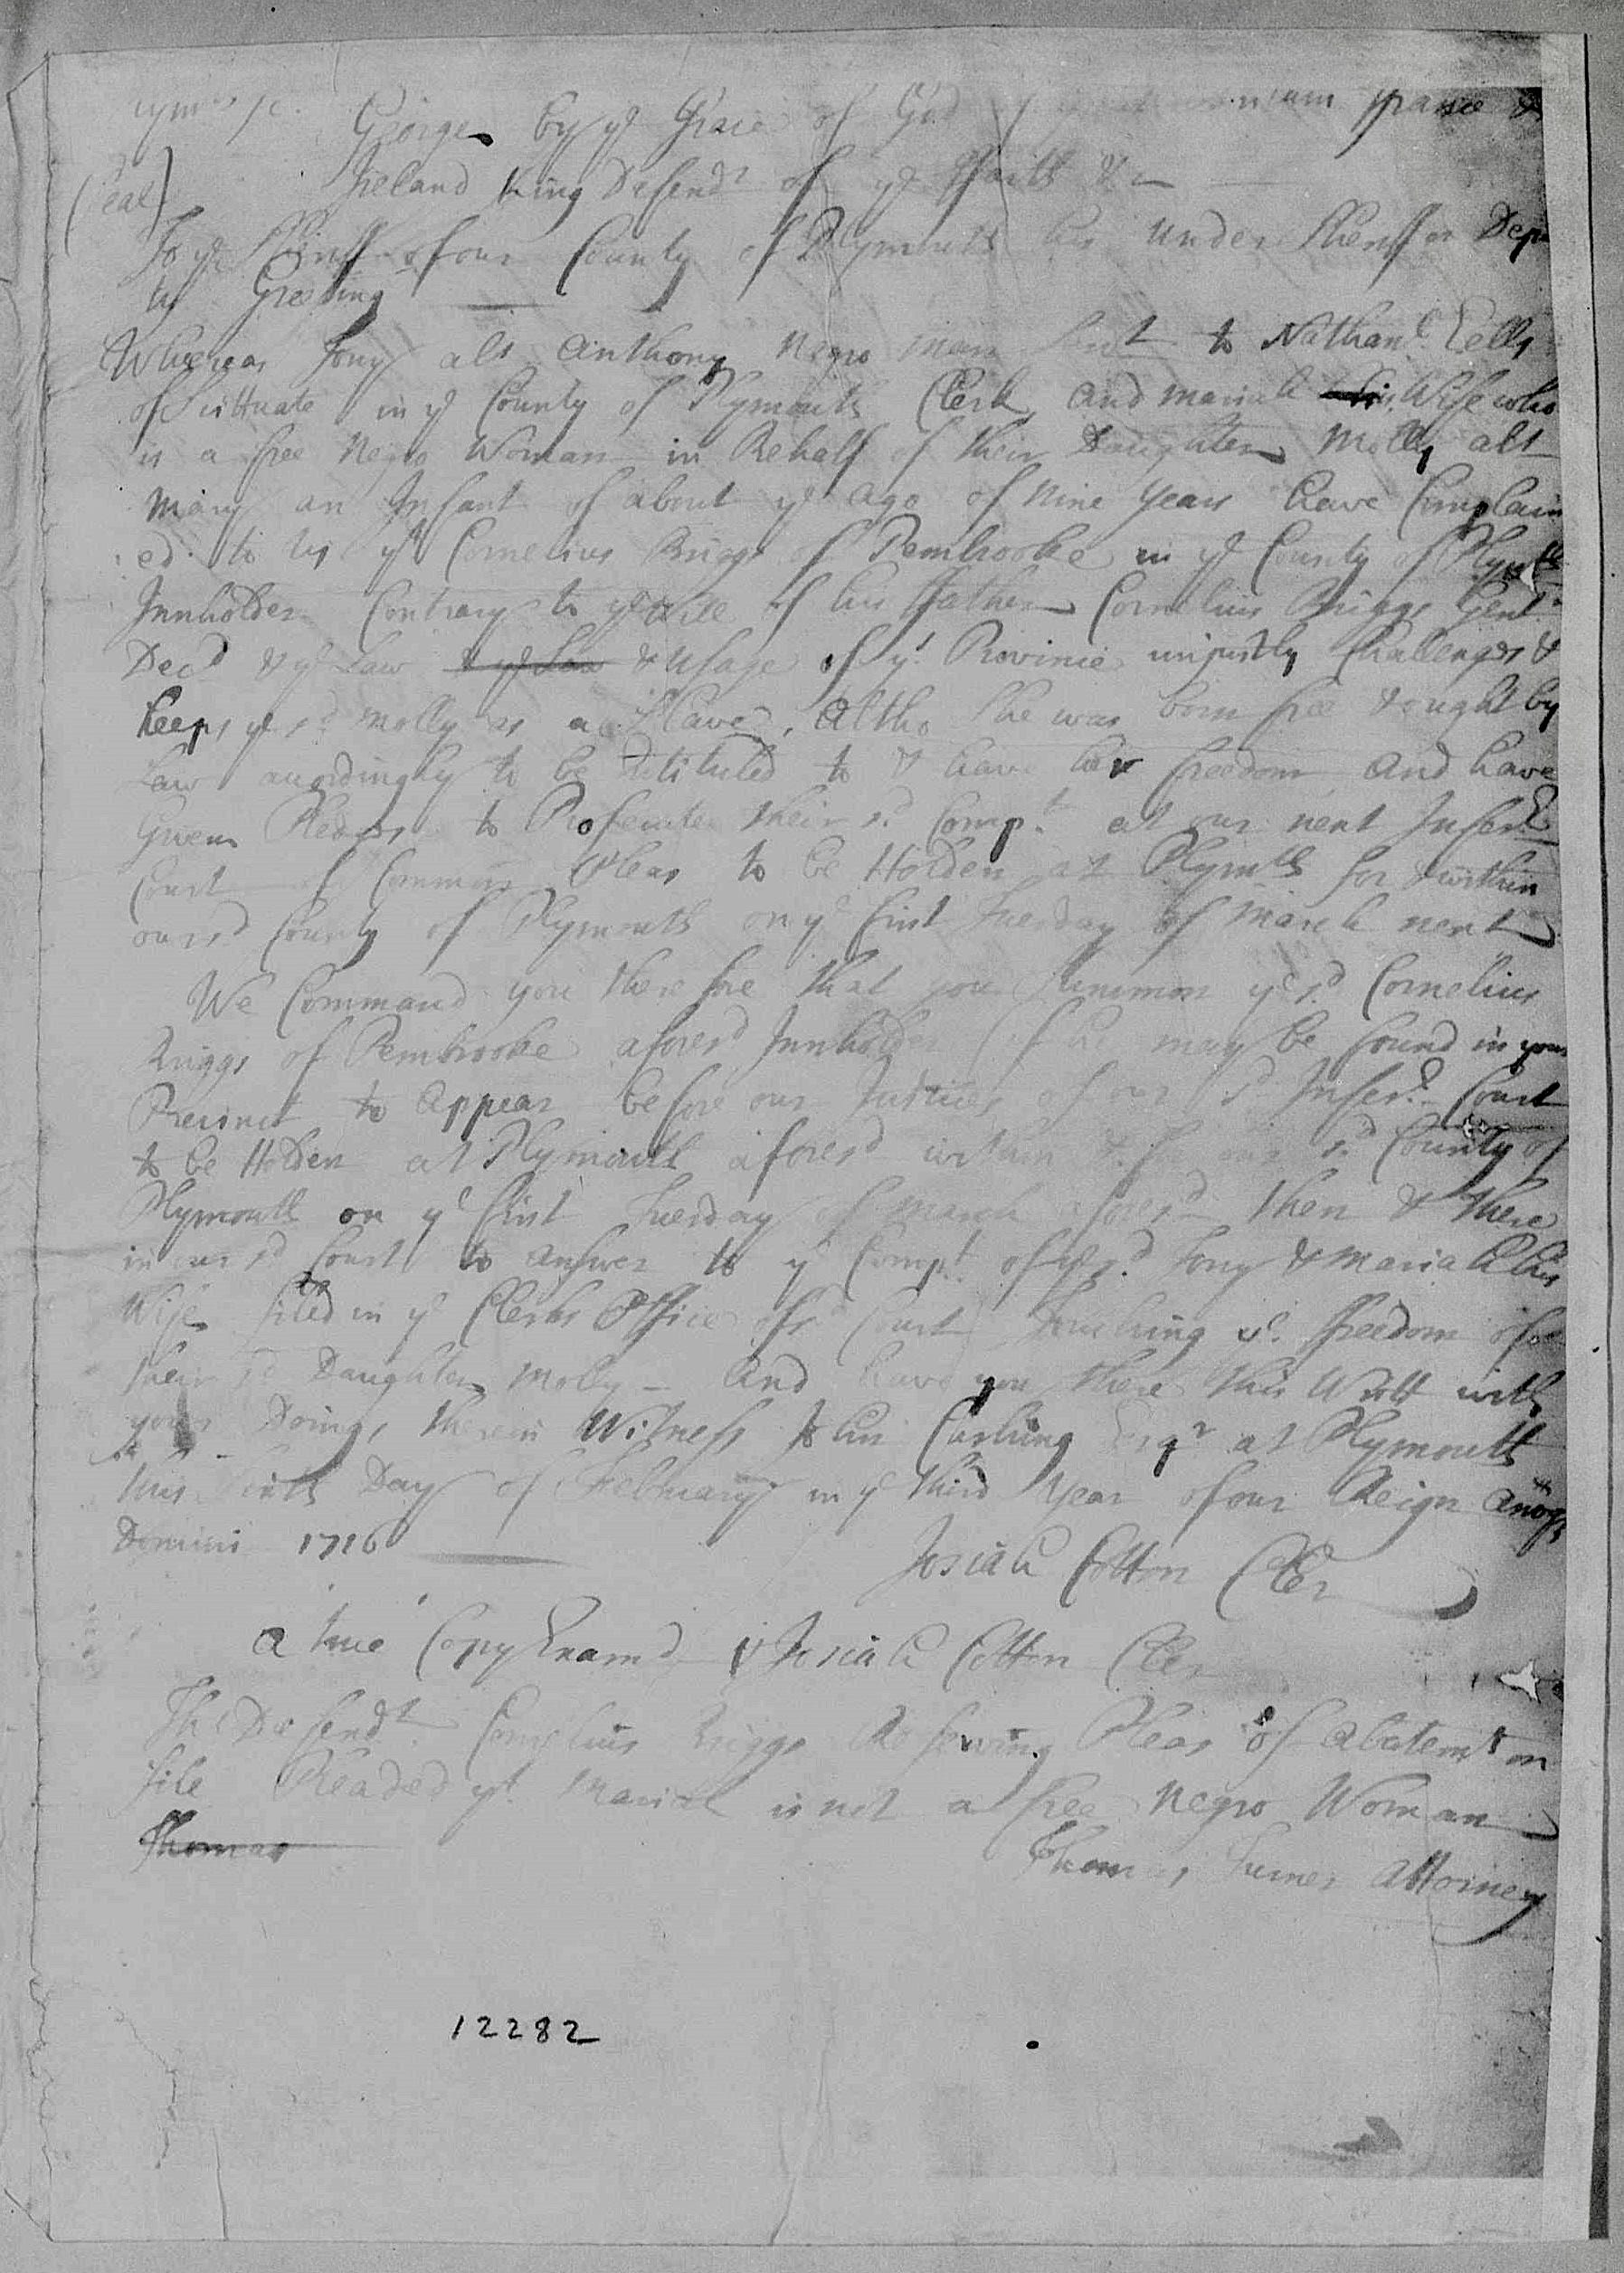 George by ye Grace of God france &
(Seal) Ireland King Defendr of ye ffaith &c
To ye Sheriff of our County of Plymouth his under Sheriff or Depu
ty Greeting
Whereas Tony als Anthony Negro man Servt to Nathanl Eells
of Scittuate in ye County of Plymouth Clerk and Mariah his Wife who
is a free Negro Woman in Behalf of their Daughter Molly als
Mary an Infant of about ye Age of Nine years have Complain
ed to us yt Cornelius Briggs of Pembrooke in ye County of Plymth
Innholder Contrary to ye Will of his ffather Cornelius Briggs Gent
Decd & ye Law & ye Law & Usage of ys Province unjustly Challenges &
keeps ye sd Molly as a Slave, Altho She was born free & ought by
Law accordingly to be Intituled to & have her freedom and have
Given Pledges to Prosecute their sd Compt at our next Inferr
Court of Common Pleas to be Holden at Plymth for & within
our sd County of Plymouth on ye first Tuesday of March next
We Command you therefore that you Summon ye sd Cornelius
Briggs of Pembrooke aforesd Innholder (if he may be found in your
Precinct to Appear before our Justices of our sd Inferr Court
to be Holden at Plymouth aforesd within & for our sd County of
Plymouth on ye first Tuesday of March aforesd then & there
in our sd Court to Answer to ye Compt of ye sd Tony & Mariah his
Wife filed in ye Clerks Office of sd Court Touching ye freedom of
their sd Daughter Molly — And have you there this Writt with
your Doings therein Witness John Cushing Esqr at Plymouth
this Sixth Day of February in ye third Year of our Reign Annoq
Domini 1716
Josiah Cotton Cler
a true Copy Examd p Josiah Cotton Cler
The Defendt Cornelius Briggs Reserving Pleas of Abatemt on
file Pleaded yt Mariah is not a free Negro Woman
Thomas Thomas Turner Attorney
12282